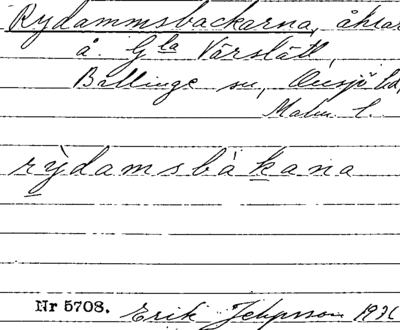 Rydammsbackarna, åkrar
å Gla Värslätt,
Ballinge sn, Onsjö hd,
Malm. l.
rỳdamsbàkana
Nr 5708. Erik Jeppsson 1936